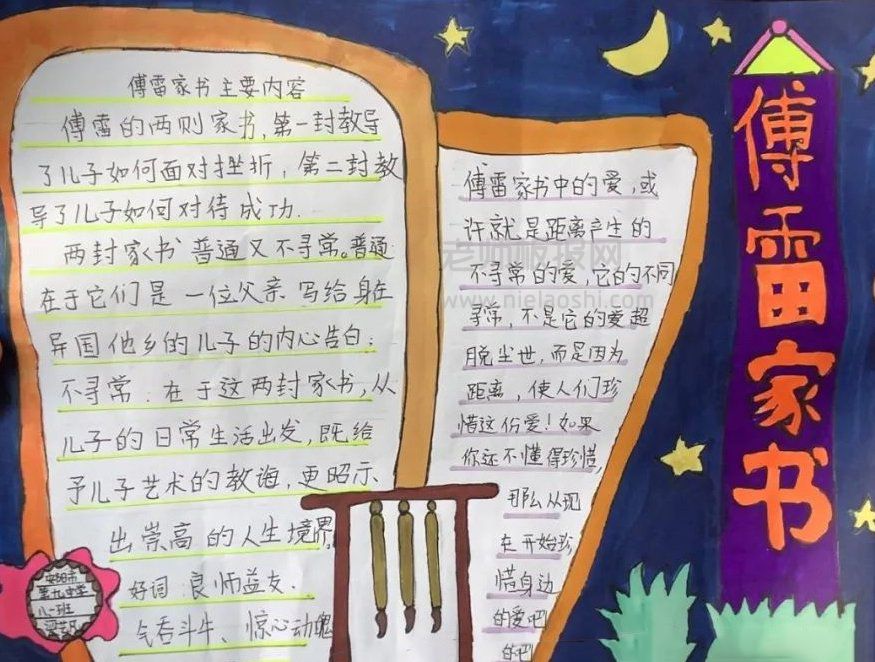 傅雷家书主要内容
傅雷的两则家书,第一封教导
了儿子如何面对挫折,第二封教
导了儿子如何对待成功.
两封家书普通又不寻常。普通
在于它们是一位父亲写给身在
异国他乡的儿子的内心告白;
不寻常.在于这两封家书,从
儿子的日常生活出发,既给
予儿子艺术的教诲,更昭示
出崇高的人生境界
好词:良师益友.
气吞斗牛、惊心动魄
傅雷家书中的爱,或
许就是距离产生的
不寻常的爱,它的不同
寻常,不是它的爱超
脱尘世,而是因为
距离,使人们珍
惜这份爱!如果
你还不懂得珍惜,
那么从现
在开始珍
惜身边
的爱吧
的吧
傅雷家书
安阳市
第九中学
八一班
老师板报网
www.nielaoshi.com